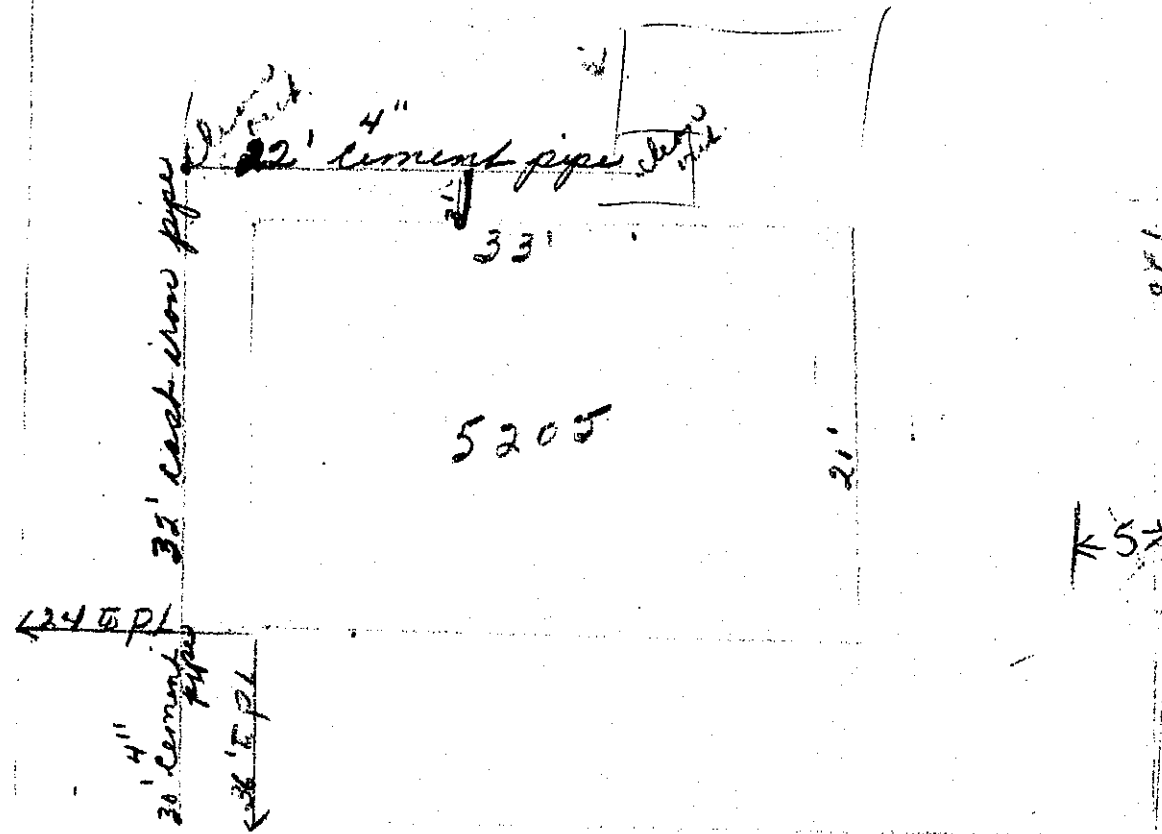 Clean out
4"
22' cement pipe
Clean out
2'
33'
32' cast iron pipe
5205
21'
5
24 to PL
4"
30' cement pipe
36' to PL